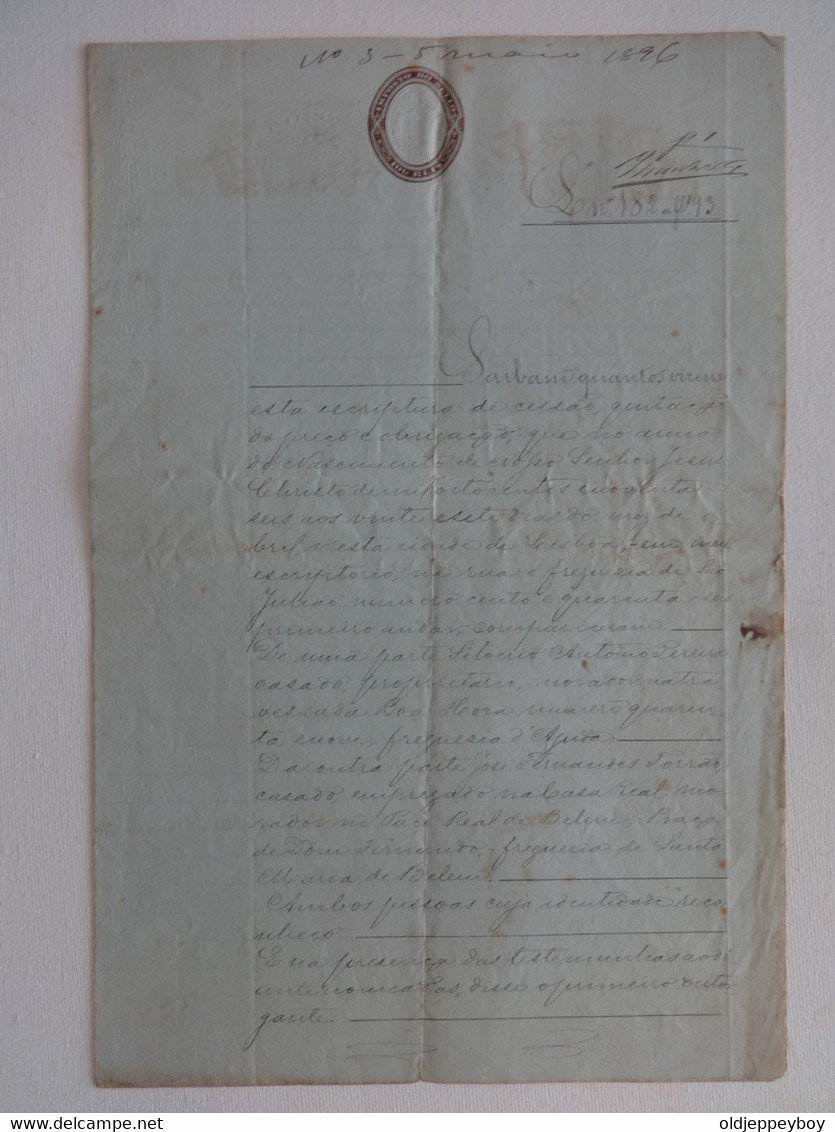 Nº 3 - 5 maio 1896
IMPOSTO DO SELLO
Lº nº 182 a fl 93
Saibam quantos virem
esta escriptura de cessão, quitação
do preço e obrigação, que no anno
do Nascimento de Nosso Senhor Jesus
Christo de mil oitocentos e noventa e
seis, aos vinte e sete dias do mez de A-
bril, n'esta cidade de Lisboa, em meu
escriptorio, na rua e freguezia de São
Julião numero cento e quarenta e seis
primeiro andar, compareceram.
De uma parte Silverio Antonio Pereira
casado, proprietario, morador na tra
vessa da Boa-Hora numero quaren
ta e nove, freguesia d'Ajuda.
Da outra parte José Fernandes Torrão,
casado, empregado na Casa Real, mo-
rador no Paço Real de Belem, Praça
de Dom Fernando, freguezia de Santa
Maria de Belem.
Ambos pessoas cuja identidade reco
nheço
E na presença das testemunhas ao di
ante nomeadas, disse o primeiro outor
gante.
oldjeppeyboy